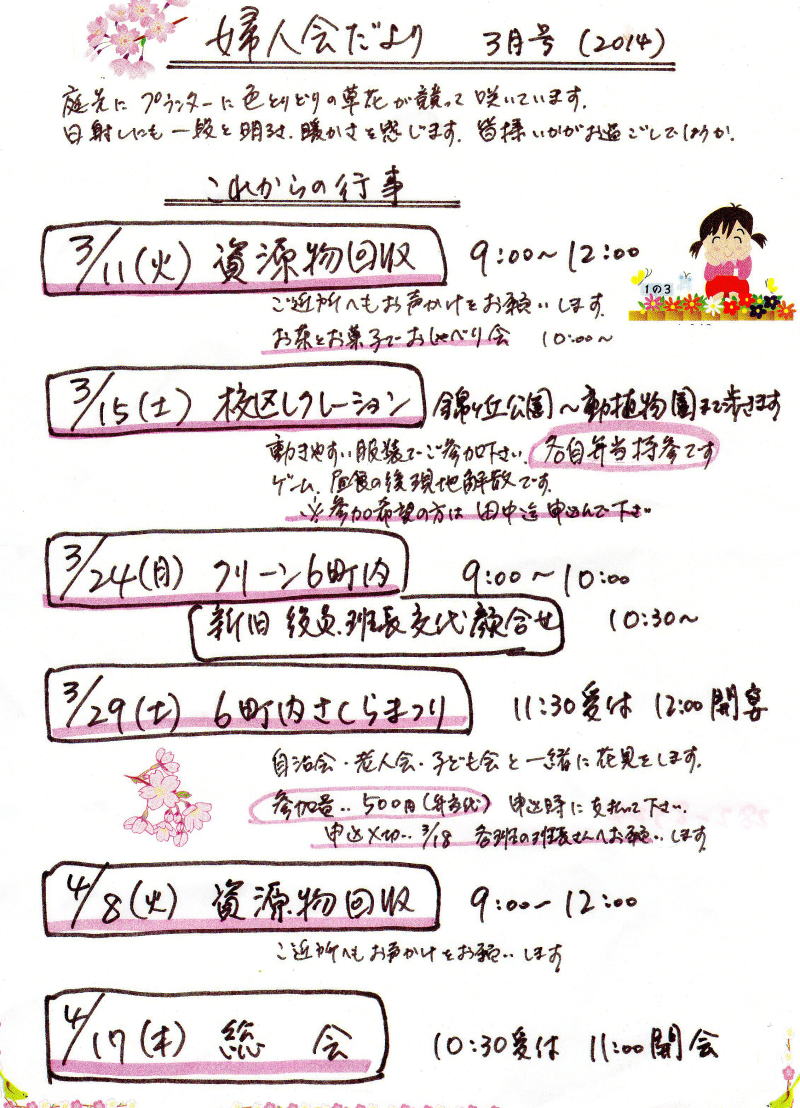 婦人会だより 3月号 (2014)
庭先に プランターに 色とりどりの草花が競って 咲いています.
日射しにも 一段と 明るさ、暖かさを感じます. 皆様いかがお過ごしでしょうか.
これからの行事
3/11(火) 資源物回収 9:00~12:00
1の3
ご近所へもお声かけをお願いします.
お茶とお菓子でおしゃべり会 10:00~
3/15(土) 校区レクレーション 錦ヶ丘公園~動植物園まで歩きます
動きやすい服装でご参加下さい. 各自弁当持参です
ゲーム、昼食の後現地解散です.
※参加希望の方は 田中迄 申込んで下さい
3/24(月) クリーン6町内 9:00~10:00
新旧 役員.班長交代顔合せ 10:30~
3/29(土) 6町内さくらまつり 11:30受付 12:00開宴
自治会・老人会・子ども会と一緒に花見をします.
参加費‥500円(弁当代) 申込時に支払って下さい
申込〆切‥3/18 各班の班長さんへお願いします
4/8(火) 資源物回収 9:00-12:00
ご近所へもお声かけをお願いします
4/17(木) 総 会 10:30受付 11:00開会